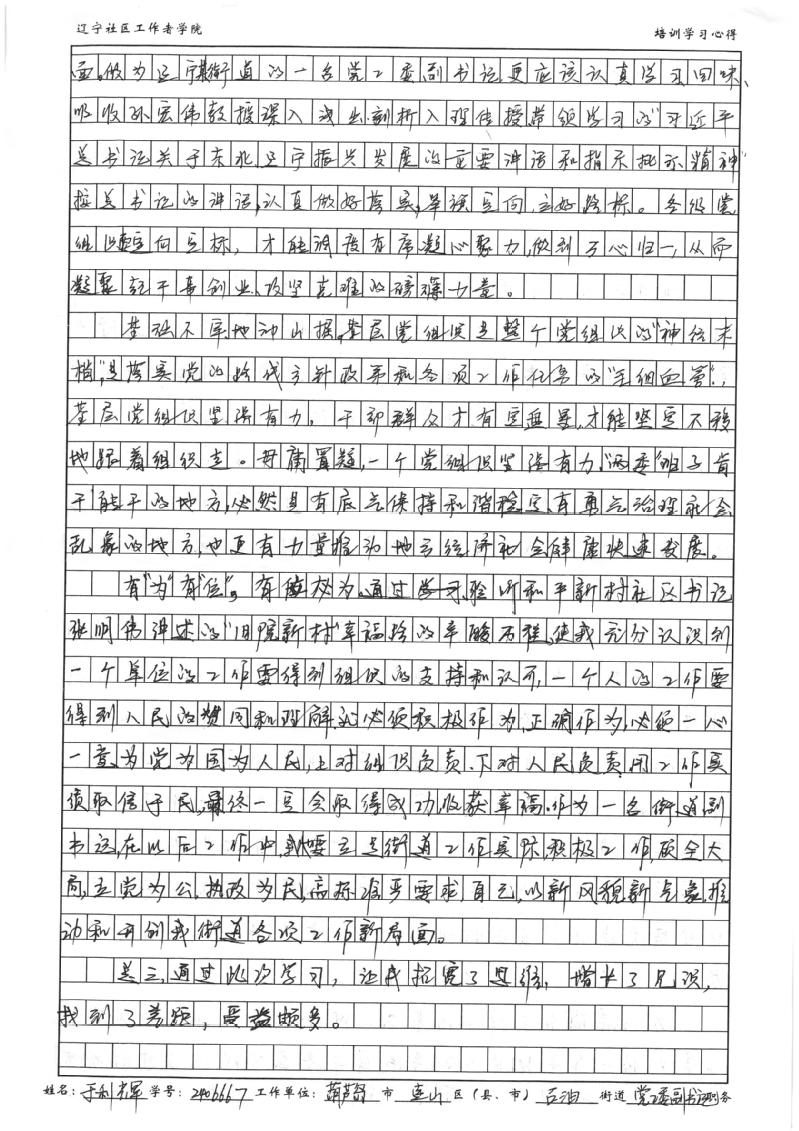 辽宁社区工作者学院 培训学习心得
面。做为辽宁某街道的一名党工委副书记更应该认真学习回味、
吸收孙宏伟教授深入浅出剖析入理传授带领学习的“习近平
总书记关于东北辽宁振兴发展的重要讲话和指示批示精神”
按总书记的讲话,认真做好落实,举旗定向立好路标。各级党
组织定向定标,才能调度有序凝心聚力,做到万心归一,从而
凝聚起干事创业、攻坚克难的磅礴力量。
基础不牢地动山摇,基层党组织是整个党组织的“神经末
梢”,是落实党的路线方针政策和各项工作任务的“毛细血管”,
基层党组织坚强有力,干部群众才有定盘星,才能坚定不移
地跟着组织走。毋庸置疑,一个党组织坚强有力,“两委”班子肯
干能干的地方,必然是有底气保持和谐稳定有勇气治理社会
乱象的地方,也更有力量推动地方经济社会健康快速发展。
有“为”有“位”,有位必为。通过学习、聆听和平新村社区书记
张明伟讲述的“旧院新村”幸福路的辛酸历程,使我充分认识到
一个单位的工作要得到组织的支持和认可,一个人的工作要
得到人民的赞同和理解,就必须积极作为,正确作为,必须一心
一意为党为国为人民,上对组织负责、下对人民负责用工作实
绩取信于民,最终一定会取得成功,收获幸福。作为一名街道副
书记,在以后工作中,我要立足街道工作实际,积极工作,顾全大
局,立党为公,执政为民,高标准严要求自己,以新风貌新气象,推
动和开创我街道各项工作新局面。
总之,通过此次学习,让我拓宽了思维,增长了见识,
找到了差距,受益颇多。
姓名:于利辉 学号:2406667 工作单位:葫芦岛 市 连山 区(县、市) 石油 街道 党工委副书记 职务